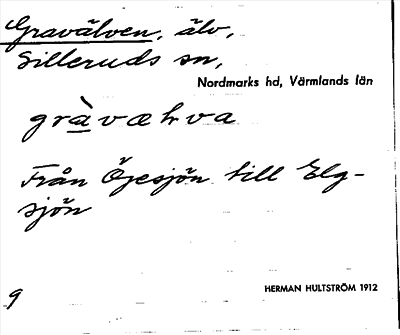 Gravälven, älv,
Silleruds sn,
Nordmarks hd, Värmlands län
gràvæhva
Från Öjesjön till Elg-
sjön
9
HERMAN HULTSTRÖM 1912